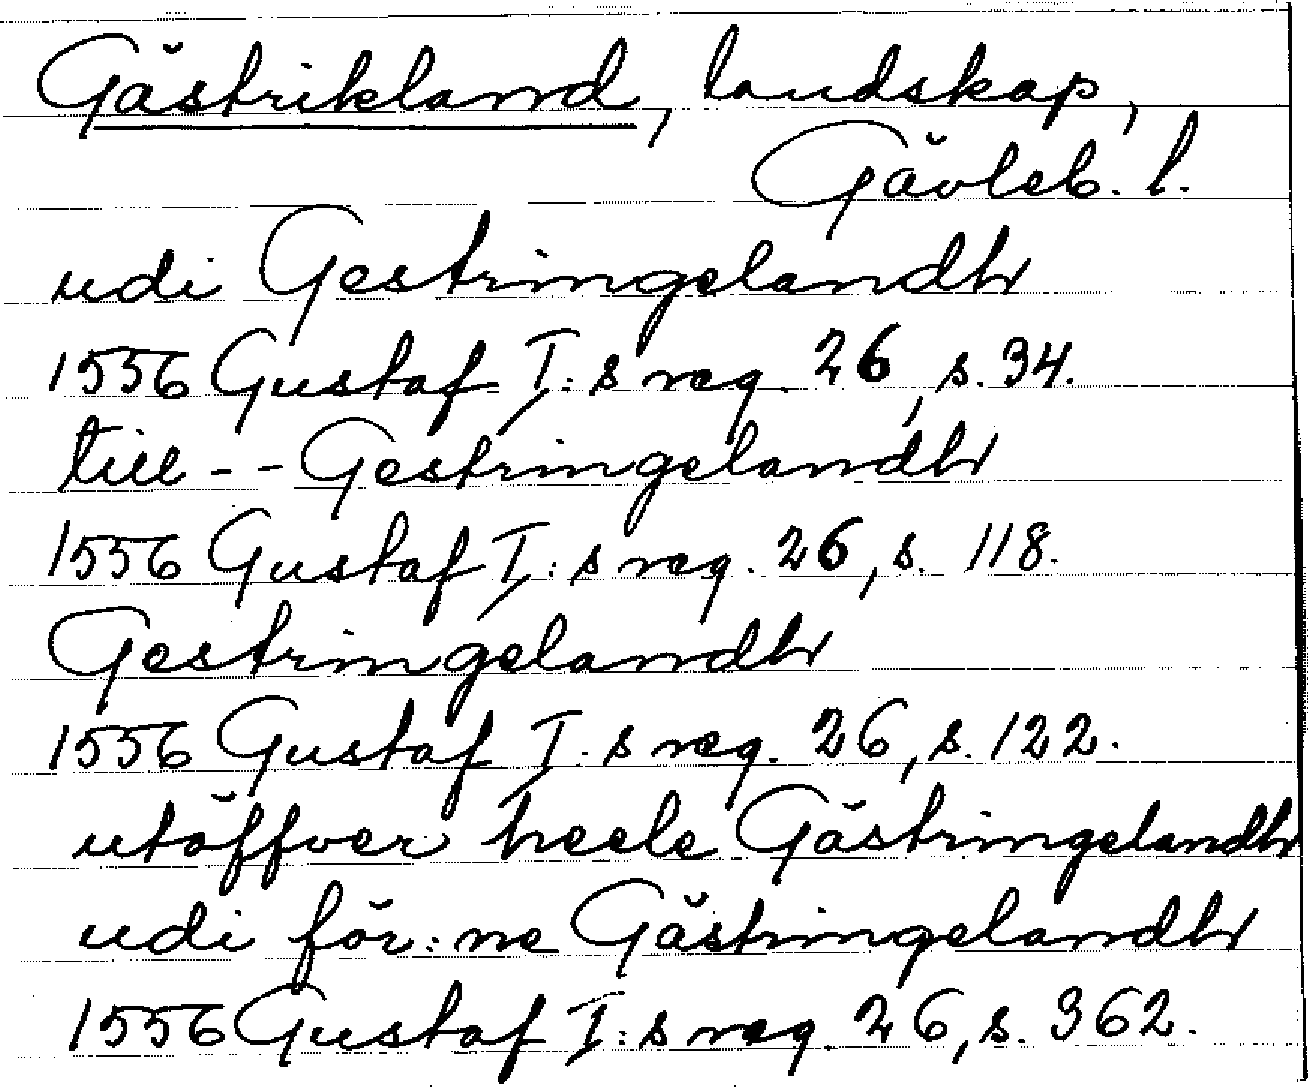 Gästrikland, landskap,
Gävleb. l.
udi Gestringelandh
1556 Gustaf I:s reg. 26, s. 34.
till - - Gestringelandh
1556 Gustaf I:s reg. 26, s. 118.
Gestringelandh
1556 Gustaf I:s reg. 26, s. 122.
utöffver heele Gästringelandh
udi för:ne Gästringelandh
1556 Gustaf I:s reg. 26, s. 362.